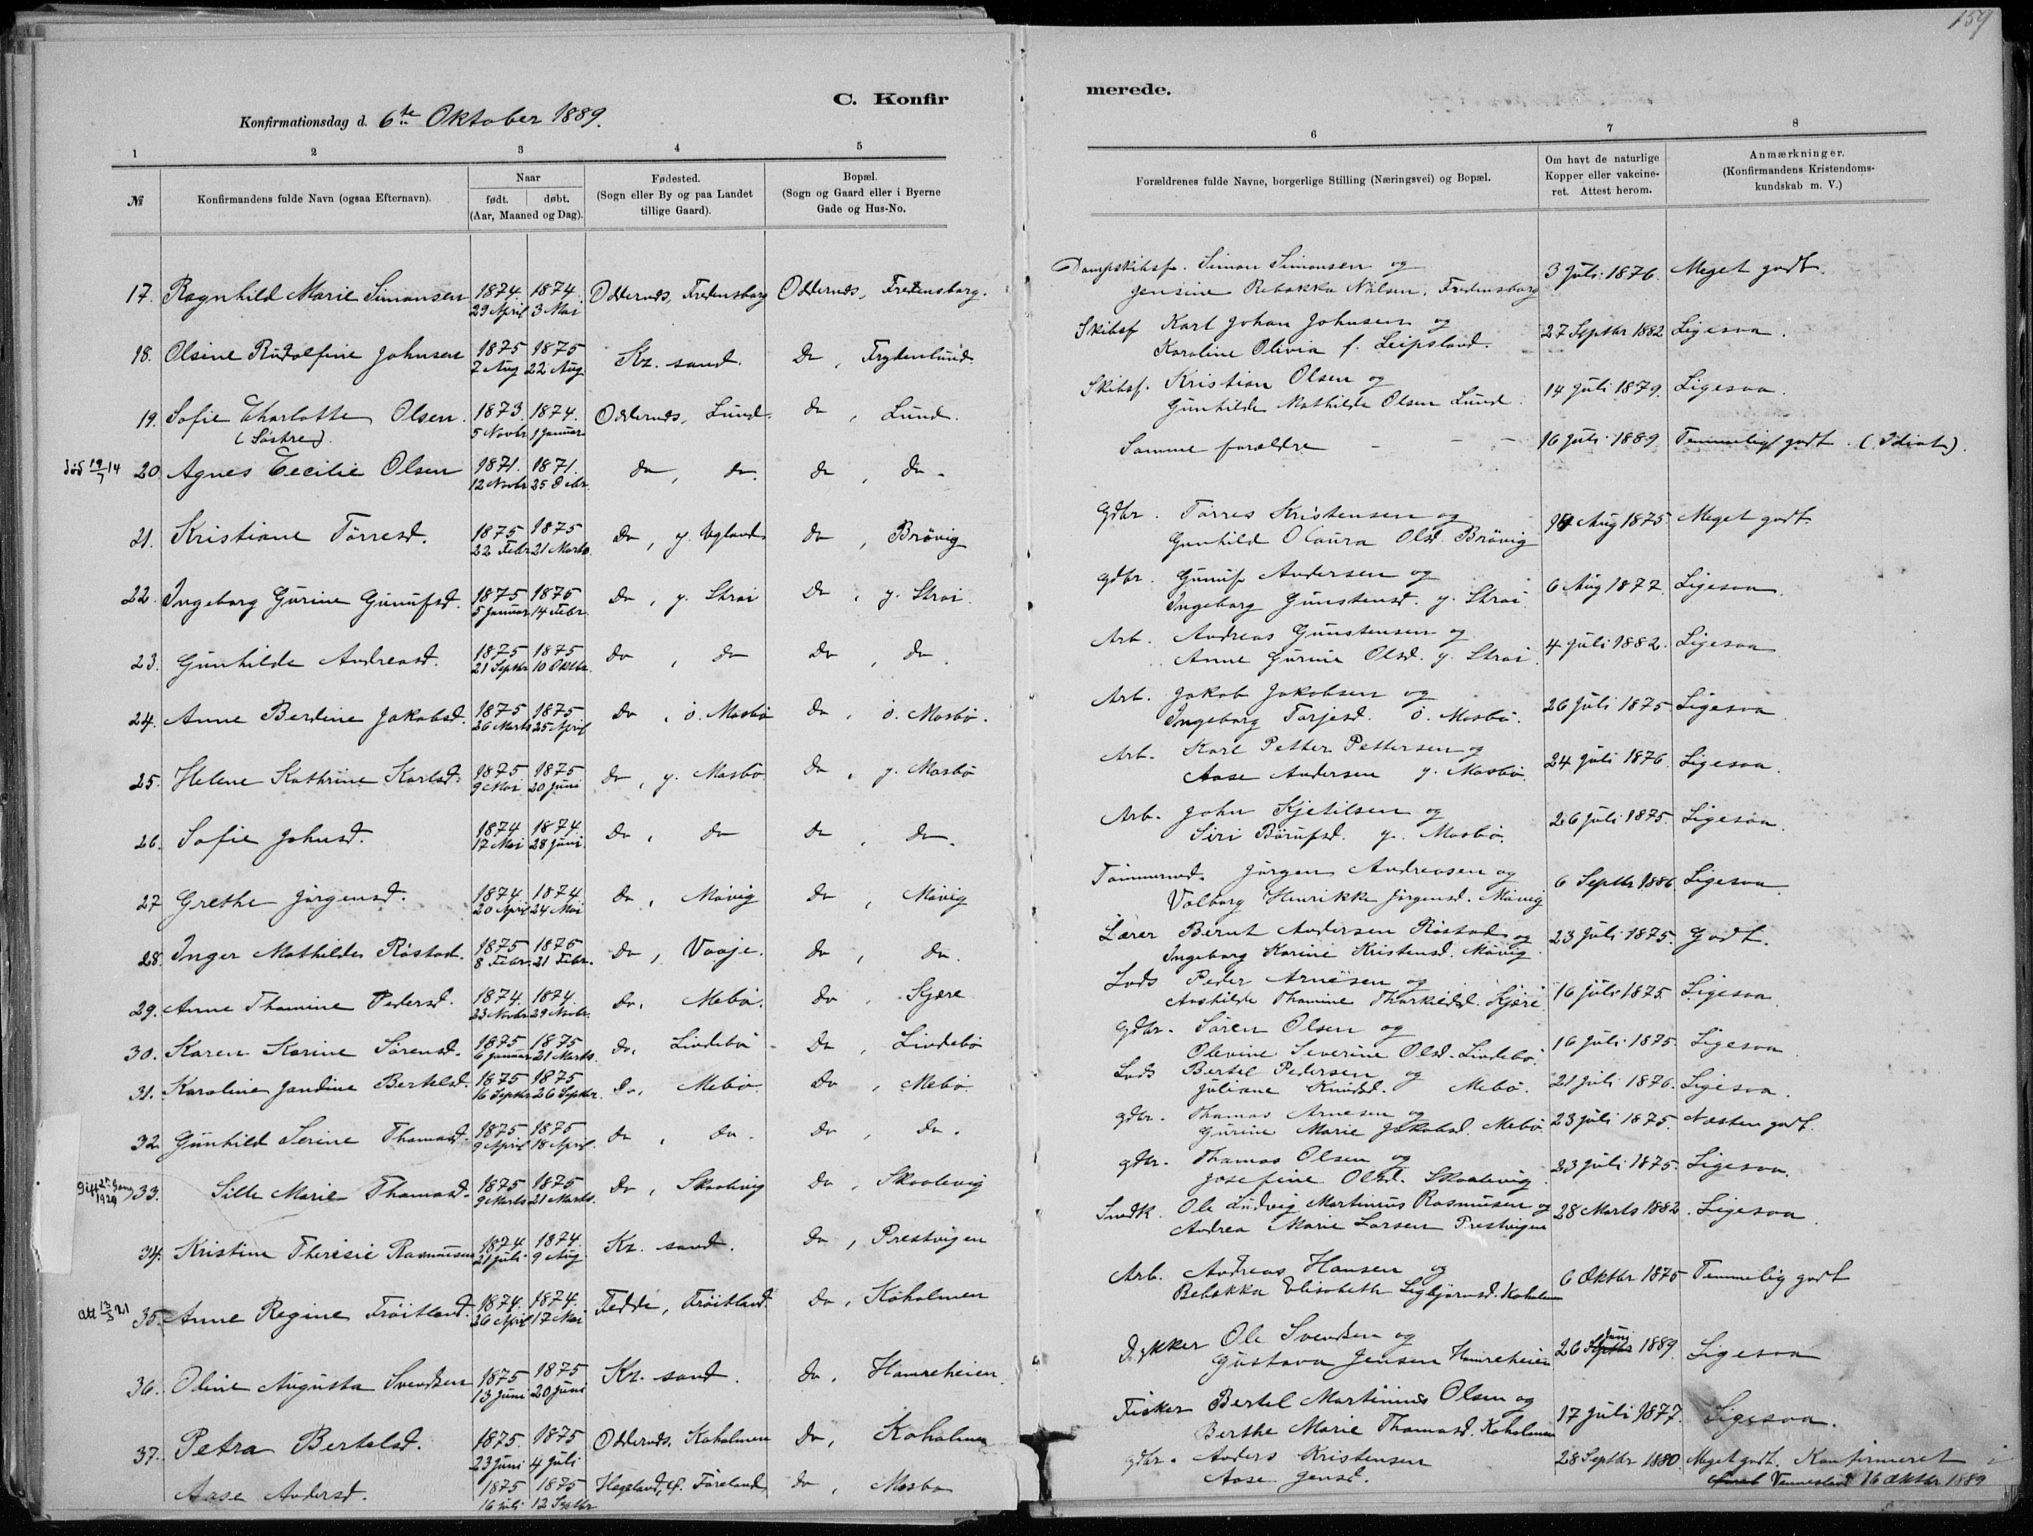 159
C. Konfir
merede.
Konfirmationsdag d. 6te Oktober 1889.
1 2 3 4 5 6 7 8
№
Konfirmandens fulde Navn (ogsaa Efternavn).
Naar
født. døbt.
(Aar, Maaned og Dag).
Fødested.
(Sogn eller By og paa Landet
tillige Gaard).
Bopæl.
(Sogn og Gaard eller i Byerne
Gade og Hus-No.
Forældrenes fulde Navne, borgerlige Stilling (Næringsvei) og Bopæl.
Om havt de naturlige
Kopper eller vakcine-
ret. Attest herom.
Anmærkninger.
(Konfirmandens Kristendoms-
kundskab m. V.)
17. Ragnhild Marie Simonsen 1874. 29 April 1874. 3 Mai Oddernes, Fredensborg Oddernes, Fredensborg.
Dampskibsf. Simon Simonsen og
Jensine Rebekka Nilsen. Fredensborg 3 Juli 1876. Meget godt.
18. Olsine Rudolfine Johnsen 1875 2 Aug 1875 22 Aug Kr. sand. Do, Frydenlund
Skibsf Karl Johan Johnsen og
Karoline Olivia f. Leipsland. 27 Septbr 1882 Ligesaa.
19. Sofie Charlotte Olsen. 1873. 5 Novbr 1874. 1 Januar Oddernes, Lund. do, Lund.
(Søstre)
Skibsf. Kristian Olsen og
Gunhilde Mathilde Olsen Lund. 14 Juli 1879. Ligesaa
død 19/7 14 20. Agnes Cecilie Olsen 1871. 12 Novbr 1871. 25 Debr. do, do. do, do.
Samme forældre - - - 16 Juli 1889 Temmelig godt. (Idiot).
21. Kristiane Torresd. 1875 22 Febr 1875 21 Marts Do, y. Vgland do, Brøvig
Gdbr. Torres Kristensen og
Gunhild Olaura Olsd. Brøvig Aug 1875 Meget godt
22. Ingeborg Gurine Gunufsd. 1875 5 Januar 1875 14 Febr. do, y. Strai Do, y. Strai.
Gdbr. Gunuf Andersen og
Ingeborg Gunstensd. y. Strai. 6 Aug 1877. Ligesaa.
23. Gunhilde Andreasd. 1875 21 Septbr 1875 10 Oktbr. do, do Do, do.
Arb. Andreas Gunstensen og
Anne Gurine Olsd. y. Strai. 4 Juli 1882. Ligesaa
24. Anne Berdine Jakobsd. 1875 26 Marts 1875 25 April do, ö. Mosbø do, ö. Mosbø.
Arb. Jakob Jakobsen og
Ingeborg Tarjesd. ö. Mosbø. 26 Juli 1875 Ligesaa
25. Helene Kathrine Karlsd. 1875 9 Mai 1875 20 Juni do, y. Mosbø Do, y. Mosbø
Arb. Karl Petter Pettersen og
Aase Andersen y. Mosbø. 24 Juli 1876. Ligesaa.
26. Sofie Johnsd. 1874 17 Mai 1874. 28 Juni. Do, do do, do.
Arb. John Kjetilsen og
Siri Børufsd. y. Mosbø. 26 Juli 1875. Ligesaa.
27 Grethe Jörgensd. 1874. 20 April 1874 24 Mai do, Møvig do, Møvig
Tømmermd. Jörgen Andreasen og
Valborg Henrikke Jörgensd. Møvig 6 Septbr 1886. Ligesaa
28. Inger Mathilde Røstad. 1875 8 Febr. 1875 21 Febr. do, Vaaje. do, do.
Lærer Bernt Andersen Røstad og
Ingeborg Karine Kristensd. Møvig. 23 Juli 1875. Godt.
29. Anne Thomine Pedersd. 1874. 23 Novbr 1874. 29 Novbr. do, Mebø. do, Kjære
Lods Peder Arnesen og
Aashilde Thomine Thorkildsd. Kjære 16 Juli 1875. Ligesaa
30. Karen Karine Sørensd. 1875 6 Januar 1875 21 Marts. do, Lindebø Do, Lindebø
Gdbr. Søren Olsen og
Olevine Severine Olsd. Lindebø. 16 Juli 1875. Ligesaa
31. Karoline Jandine Bertelsd. 1875 16 Septbr 1875 26 Septbr. do, Mebø. Do, Mebø.
Lods Bertel Pedersen og
Juliane Knudsd. Mebø. 21 Juli 1876. Ligesaa.
32 Gunhild Serine Thomasd. 1875 9 April 1875 18 April. do, do. do, do.
gdbr. Thomas Arnesen og
Gurine Marie Jakobsd. Mebø 23 Juli 1875. Næsten godt.
gift 2n gang 1929 33. Sille Marie Thomasd. 1875 9 Marts 1875 21 Marts. do, Skaalevig do, Skaalevig
gdbr. Thomas Olsen og
Josefine Olsd. Skaalevig. 23 Juli 1875. Ligesaa.
34. Kristine Theresie Rasmussen 1874. 21 Juli 1874. 9 Aug. Kr. sand. do, Prestvigen
Snedk. Ole Ludvig Martinius Rasmussen og
Andrea Marie Larsen Prestvigen 28 Marts 1882. Ligesaa.
Att 13/3 21 35. Anne Regine Frøitland. 1874. 26 April 1874. 17 Mai Fedde, Frøitland do, Koholmen
Arb. Andreas Hansen og
Rebekka Elisabeth Sigbjørnsd. Koholmen 6 Oktbr 1875 Temmelig godt
36. Oline Augusta Svendsen 1875 13 Juni 1875 20 Juni Kr. sand. do, Hamreheien.
Dykker Ole Svendsen og
Gustava Jensen Hamreheien 26 Septbr Juni 1889. Ligesaa
37. Petra Bertelsd. 1875. 23 Juni 1875 4 Juli Oddernes. Koholmen do, Koholmen
Fisker Bertel Martinius Olsen og
Berthe Marie Thomasd. Koholmen 17 Juli 1877. Ligesaa.
Aase Andersd. 1875 16 Juli 1875 12 Septbr Hegeland, Föreland, do, Mosbø
gdbr. Anders Kristensen
Aase Jensd. 28 Septbr 1880. Meget godt. Konfirmeret i
Vennesland 16 Oktbr 1889